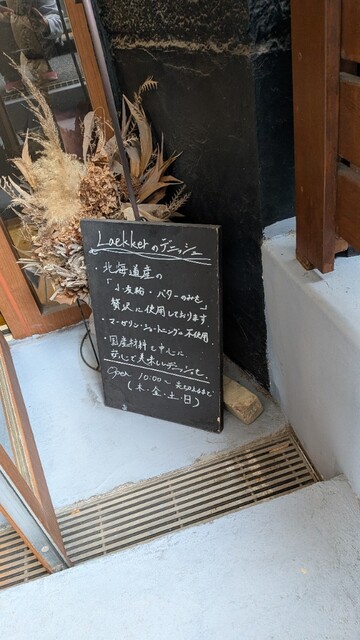 Laekkerのデニッシュ
・北海道産の
「小麦粉・バターのみを
贅沢に使用しております
・マーガリン・ショートニング不使用
・国産材料を中心に
安心で美味しいデニッシュを
Open 10:00〜 売り切れるまで
(木・金・土・日)